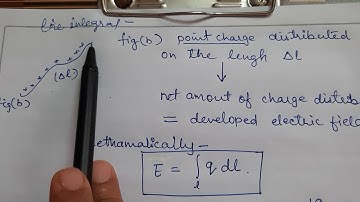 line integral -
fig(b) point charge distributed
on the lengh Δl
(Δl)
fig(b)
net amount of charge distrib
= developed electric field
methamalically -
E = ∫l q dl.